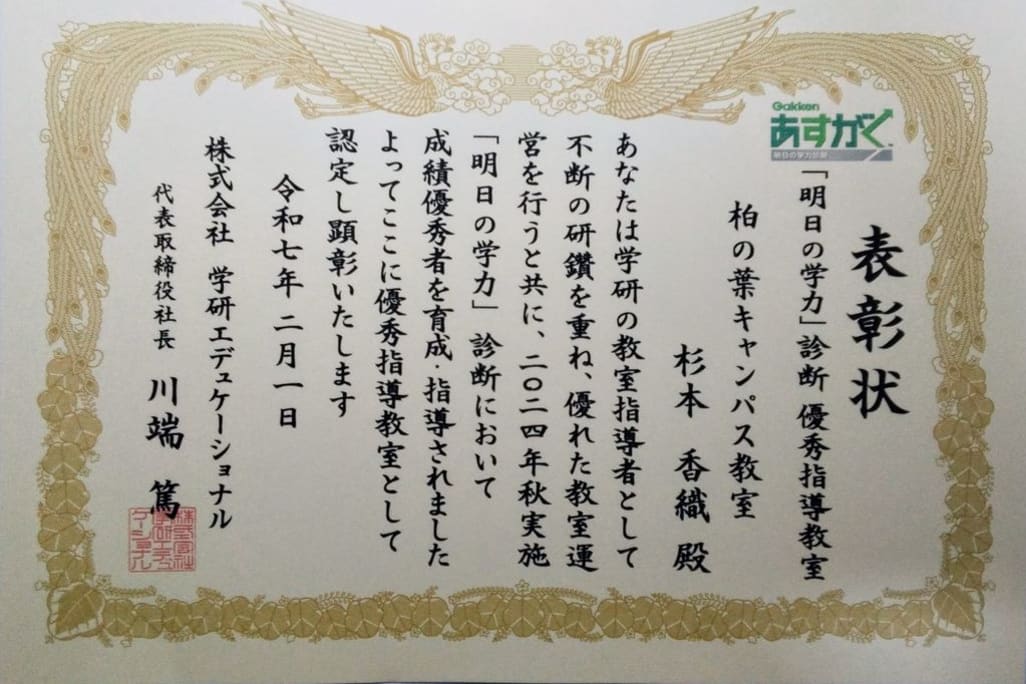 Gakken
あすがく
明日の学力診断
表彰状
「明日の学力」診断 優秀指導教室
柏の葉キャンパス教室
杉本 香織 殿
あなたは学研の教室指導者として
不断の研鑽を重ね、優れた教室運
営を行うと共に、二〇二四年秋実施
「明日の学力」診断において
成績優秀者を育成・指導されました
よってここに優秀指導教室として
認定し顕彰いたします
令和七年 二月一日
株式会社 学研エデュケーショナル
代表取締役社長 川端 篤
株式会社
学研エデュ
ケーショナル